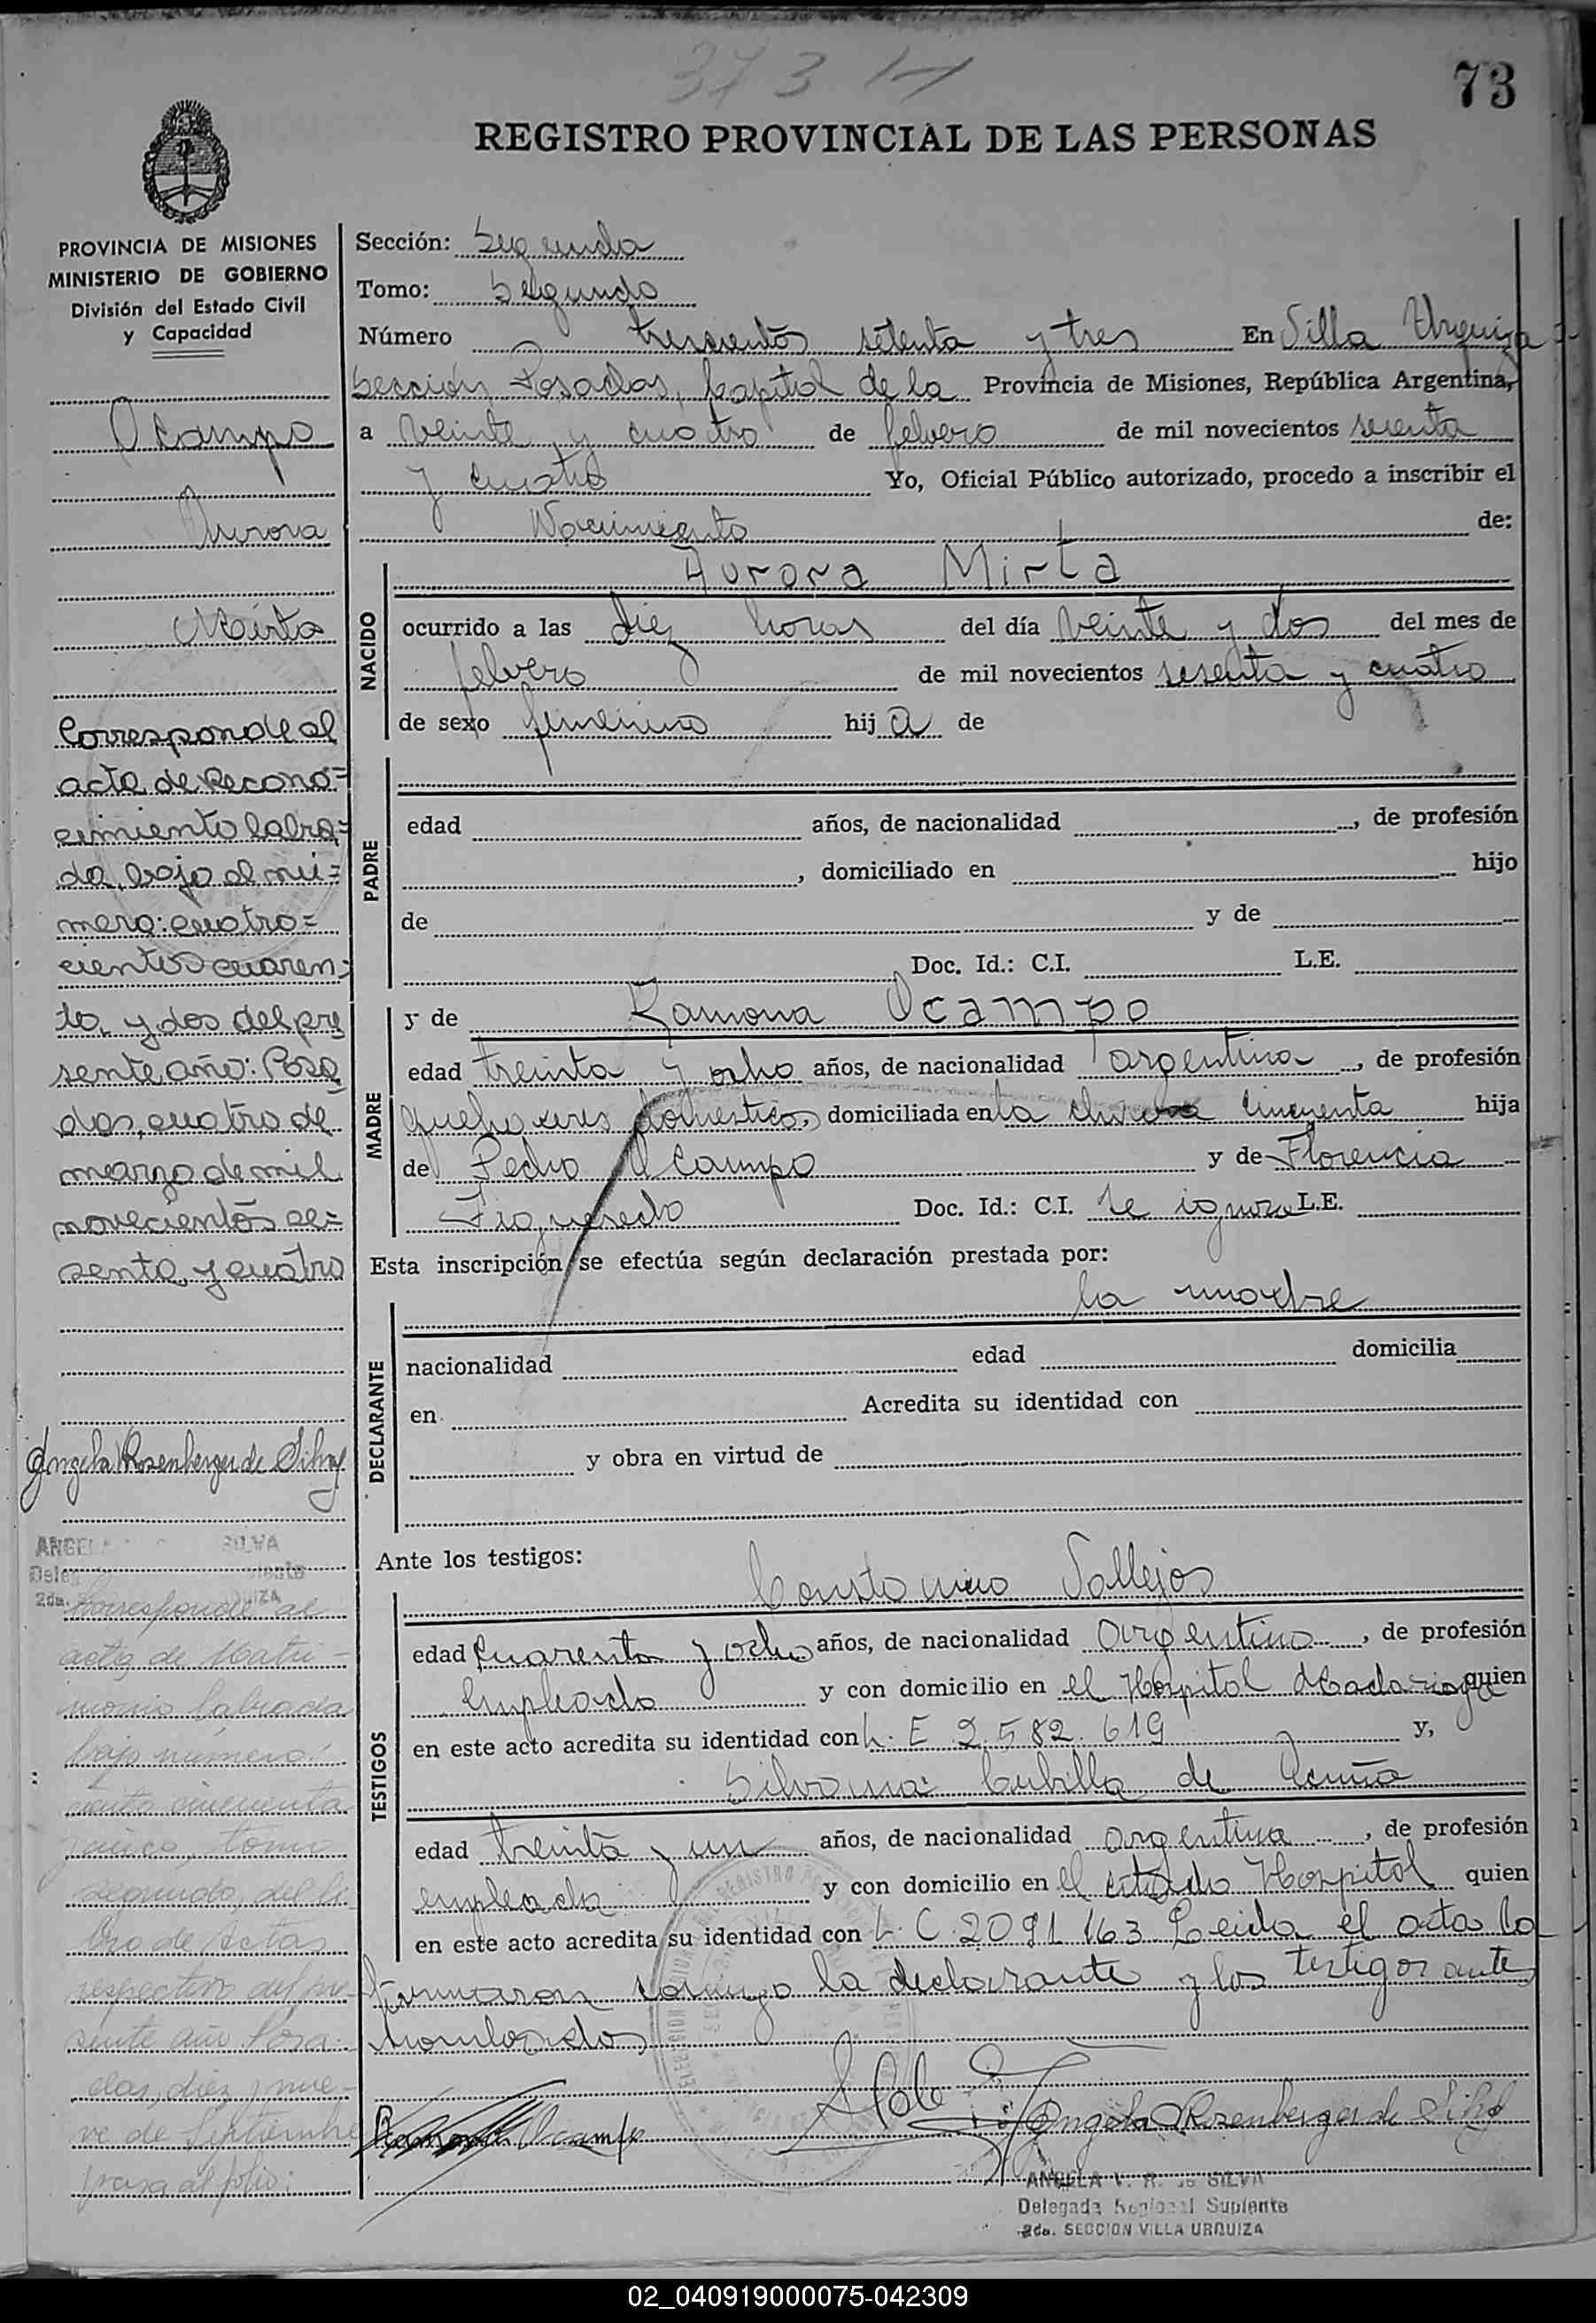 373
73
REGISTRO PROVINCIAL DE LAS PERSONAS
PROVINCIA DE MISIONES
MINISTERIO DE GOBIERNO
División del Estado Civil
y Capacidad
Ocampo
Aurora
Mirta
Corresponde al
acta de Recono=
cimiento labra=
da, bajo el nú=
mero: cuatro=
cientos cuaren=
ta y dos del pre
sente año: Posa
das, cuatro de
marzo de mil
novecientos se=
senta y cuatro
Angela Rosenberger de Silva
ANGELA SILVA
2da.
Corresponde al
acta de Matri-
monio labrada
bajo número:
ciento cincuenta
y cinco, tomo
segundo, del li-
bro de Actas
respectivo del pre-
sente año Posa-
das, diez y nue-
ve de Septiembre
pasa al folio:
Sección: Segunda
Tomo: Segundo
Número trescientos setenta y tres En Villa Urquiza
Sección Posadas, Capital de la Provincia de Misiones, República Argentina,
a veinte y cuatro de febrero de mil novecientos sesenta
y cuatro Yo, Oficial Público autorizado, procedo a inscribir el
Nacimiento de:
NACIDO
Aurora Mirta
ocurrido a las diez horas del día veinte y dos del mes de
febrero de mil novecientos sesenta y cuatro
de sexo femenino hij a de
PADRE
edad años, de nacionalidad , de profesión
, domiciliado en hijo
de y de
Doc. Id.: C.I. L.E.
MADRE
y de Ramona Ocampo
edad treinta y ocho años, de nacionalidad argentina, de profesión
quehaceres domestico, domiciliada en la chacra cincuenta hija
de Pedro Ocampo y de Florencia
Figueredo Doc. Id.: C.I. se ignora L.E.
Esta inscripción se efectúa según declaración prestada por:
la madre
DECLARANTE
nacionalidad edad domicilia
en Acredita su identidad con
y obra en virtud de
Ante los testigos:
TESTIGOS
Vallejos
edad cuarenta y ocho años, de nacionalidad argentino, de profesión
empleado y con domicilio en el Hospital Madariaga quien
en este acto acredita su identidad con L. E 2.582.619 y,
Silvana Cubilla de Acuña
edad treinta y un años, de nacionalidad argentina, de profesión
empleada y con domicilio en el citado Hospital quien
en este acto acredita su identidad con L. C 2091 163 Leida el acta la
firmaron conmigo la declarante y los testigos antes
nombrados
Ramona Ocampo
Angela Rosenberger de Silva
ANGELA V. R. de SILVA
Delegada Regional Suplente
2da. SECCION VILLA URQUIZA
02_040919000075-042309